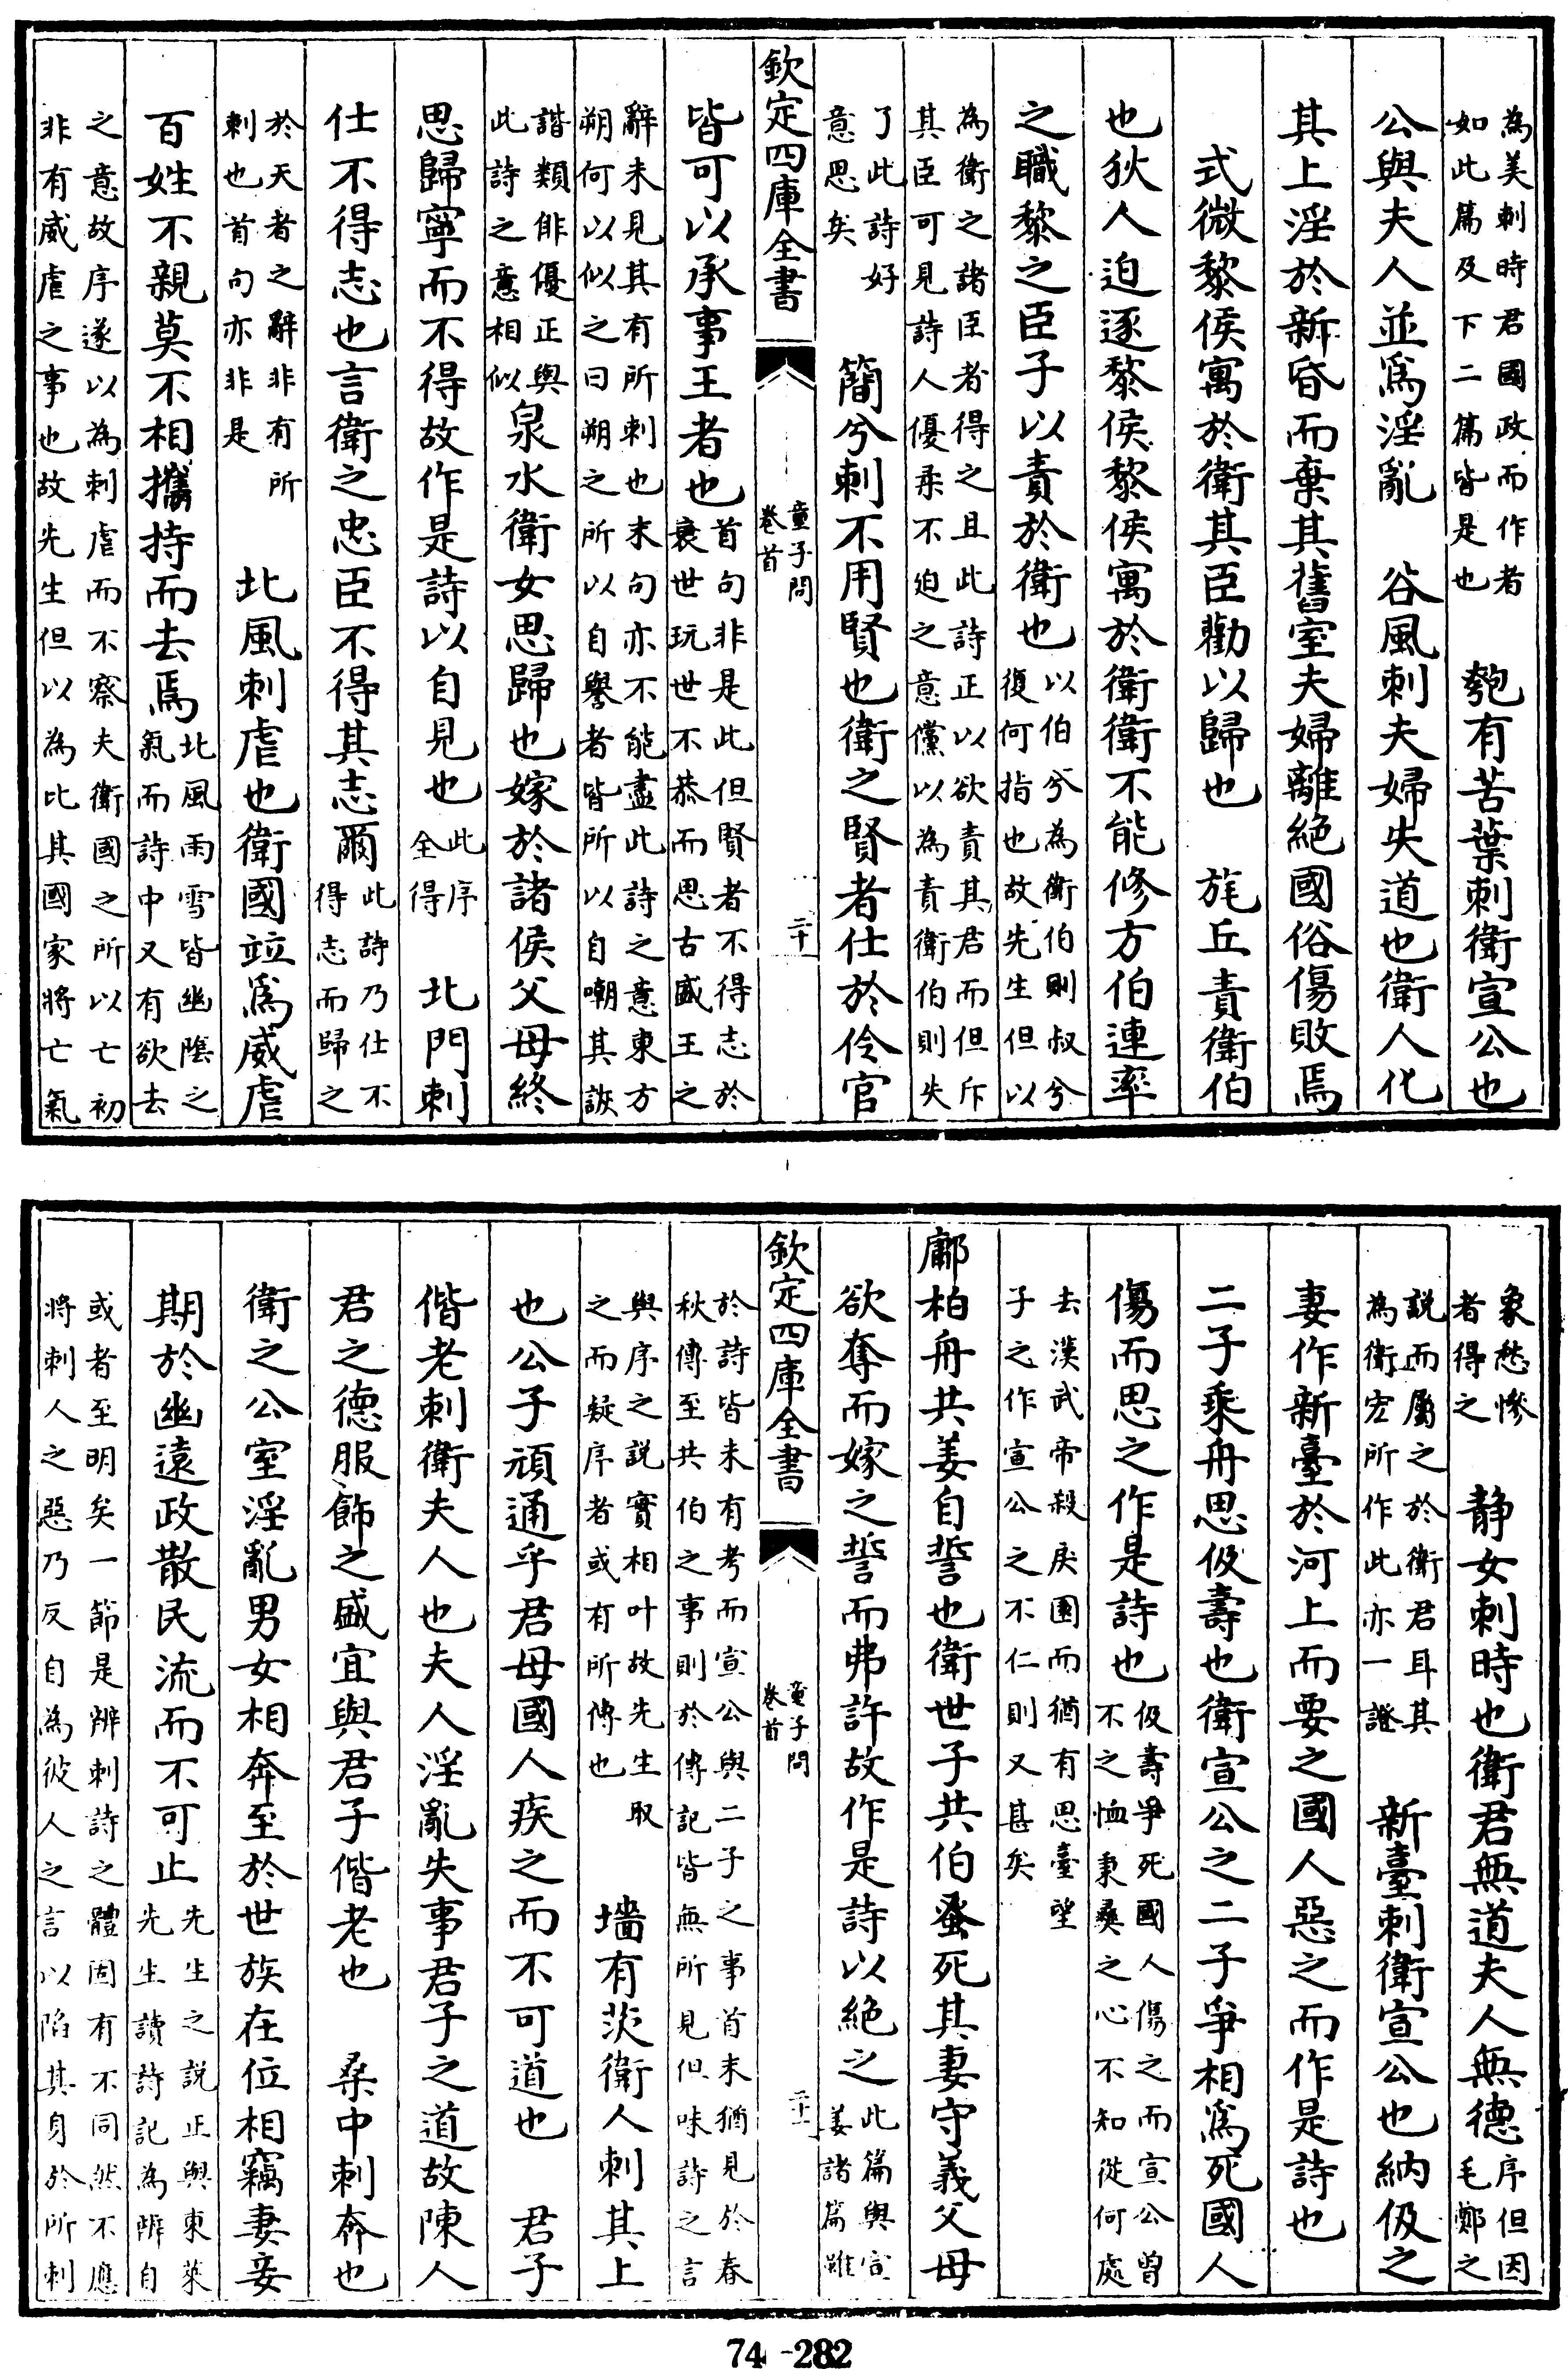 為美刺時君國政而作者
如此篇及下二篇皆是也
匏有苦葉刺衛宣公也
公與夫人並爲淫亂　谷風刺夫婦失道也衛人化
其上淫於新昏而棄其舊室夫婦離絶國俗傷敗焉
式微黎侯寓於衛其臣勸以歸也　旄丘責衛伯
也狄人迫逐黎侯黎侯寓於衛衛不能修方伯連率
之職黎之臣子以責於衛也
以伯兮為衛伯則叔兮
復何指也故先生但以
為衛之諸臣者得之且此詩正以欲責其君而但斥
其臣可見詩人優柔不迫之意儻以為責衛伯則失
了此詩好
意思矣
簡兮刺不用賢也衛之賢者仕於伶官
欽定四庫全書
童子問
卷首
二十
皆可以承事王者也
首句非是此但賢者不得志於
衰世玩世不恭而思古盛王之
辭未見其有所刺也末句亦不能盡此詩之意東方
朔何以似之曰朔之所以自譽者皆所以自嘲其詼
諧類俳優正與
此詩之意相似
泉水衛女思歸也嫁於諸侯父母終
思歸寧而不得故作是詩以自見也
此序
全得
北門刺
仕不得志也言衛之忠臣不得其志爾
此詩乃仕不
得志而歸之
於天者之辭非有所
刺也首句亦非是
北風刺虐也衛國竝爲威虐
百姓不親莫不相攜持而去焉
北風雨雪皆幽陰之
氣而詩中又有欲去
之意故序遂以為刺虐而不察夫衛國之所以亡初
非有威虐之事也故先生但以為比其國家將亡氣
象愁慘
者得之
靜女刺時也衛君無道夫人無德
序但因
毛鄭之
説而屬之於衛君耳其
為衛宏所作此亦一證
新臺刺衛宣公也納伋之
妻作新臺於河上而要之國人惡之而作是詩也
二子乘舟思伋壽也衛宣公之二子爭相爲死國人
傷而思之作是詩也
伋壽爭死國人傷之而宣公曾
不之恤秉彝之心不知從何處
去漢武帝殺戾園而猶有思臺望
子之作宣公之不仁則又甚矣
鄘柏舟共姜自誓也衛世子共伯蚤死其妻守義父母
欲奪而嫁之誓而弗許故作是詩以絶之
此篇與宣
姜諸篇雖
欽定四庫全書
童子問
卷首
二十一
於詩皆未有考而宣公與二子之事首末猶見於春
秋傳至共伯之事則於傳記皆無所見但味詩之言
與序之説實相叶故先生取
之而疑序者或有所傳也
墻有茨衛人刺其上
也公子頑通乎君母國人疾之而不可道也　君子
偕老刺衛夫人也夫人淫亂失事君子之道故陳人
君之德服飾之盛宜與君子偕老也　桑中刺奔也
衛之公室淫亂男女相奔至於世族在位相竊妻妾
期於幽遠政散民流而不可止
先生之説正與東萊
先生讀詩記為辨自
或者至明矣一節是辨刺詩之體固有不同然不應
將刺人之惡乃反自為彼人之言以陷其身於所刺
74-282